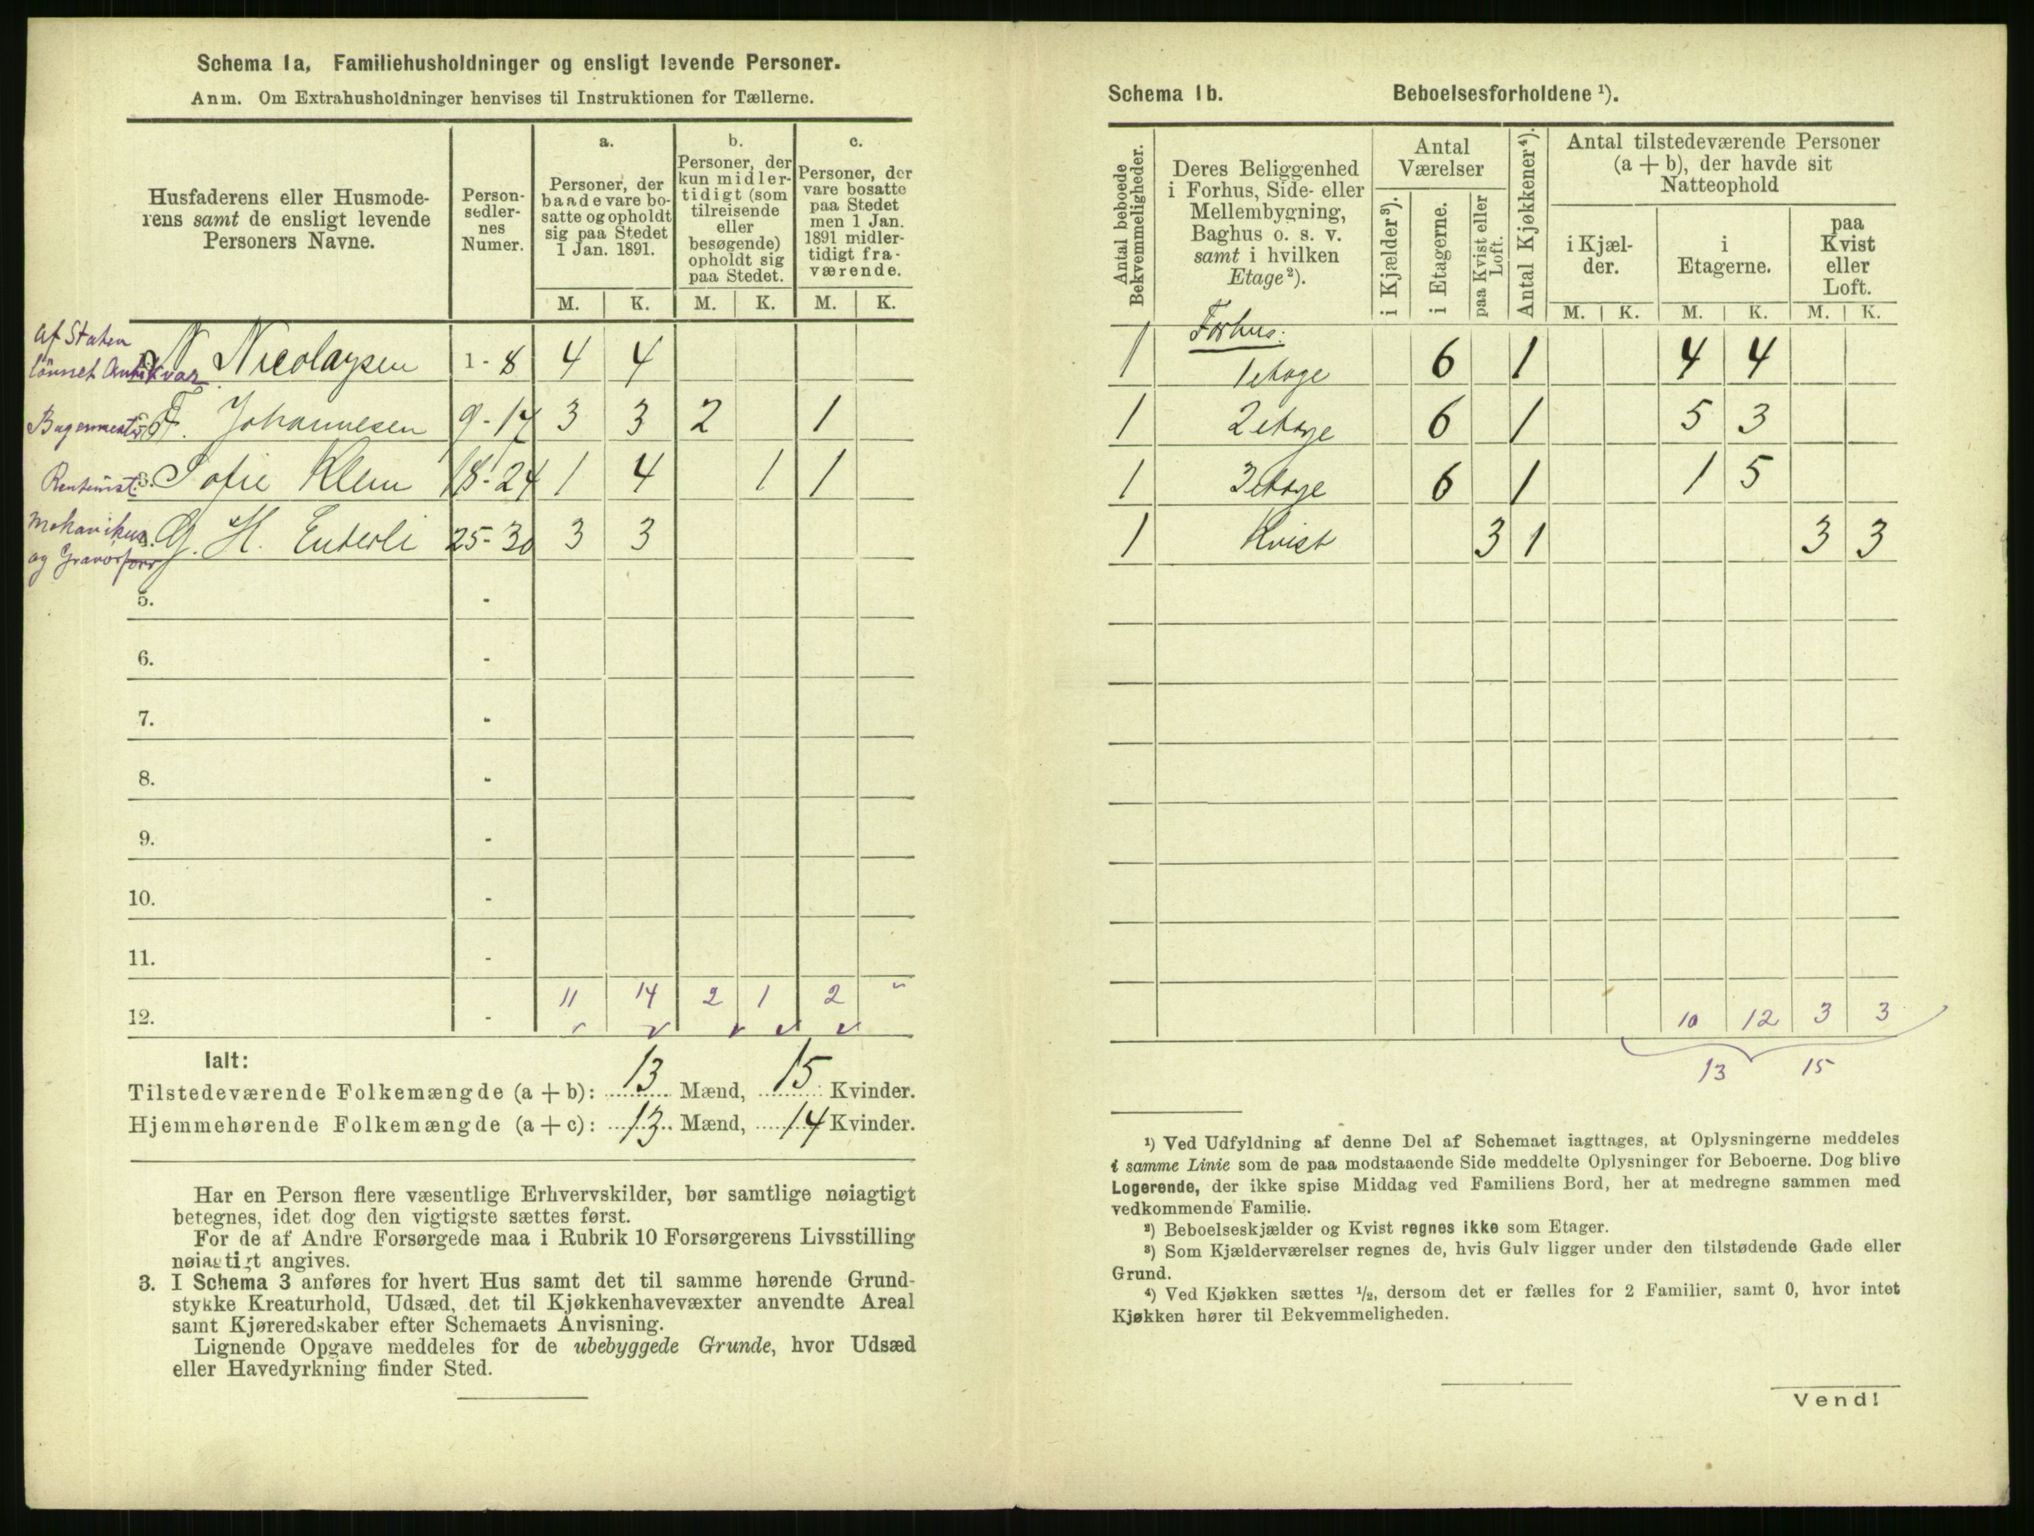 Schema 1a. Familiehusholdninger og ensligt levende Personer.
Anm. Om Extrahusholdninger henvises til Instruktionen for Tællerne.
Husfaderens eller Husmoderens samt de ensligt levende Personers Navne.
Personsedlernes Numer.
a.
Personer, der baade vare bosatte og opholdt sig paa Stedet 1 Jan. 1891.
b.
Personer, der kun midlertidigt (som tilreisende eller besøgende) opholdt sig paa Stedet.
c.
Personer, der vare bosatte paa Stedet men 1 Jan. 1891 midlertidigt fraværende.
M. K. M. K. M. K.
af Staten
lønnet Antikvar N. Nicolaysen 1-8 4 4
Bagermester F. Johannesen 9-17 3 3 2 1
Rentenist. 3. Sofie Klem 18-24 1 4 1 1
Mekanikus
og Gravørforr G. H. Enderli 25-30 3 3
5. -
6. -
7. -
8. -
9. -
10. -
11. -
12. - 11 14 2 1 2 "
Ialt:
Tilstedeværende Folkemængde (a + b): 13 Mænd, 15 Kvinder.
Hjemmehørende Folkemængde (a + c): 13 Mænd, 14 Kvinder.
Har en Person flere væsentlige Erhvervskilder, bør samtlige nøiagtigt
betegnes, idet dog den vigtigste sættes først.
For de af Andre Forsørgede maa i Rubrik 10 Forsørgerens Livsstilling
nøiagtigt angives.
3. I Schema 3 anføres for hvert Hus samt det til samme hørende Grund-
stykke Kreaturhold, Udsæd, det til Kjøkkenhavevæxter anvendte Areal
samt Kjøreredskaber efter Schemaets Anvisning.
Lignende Opgave meddeles for de ubebyggede Grunde, hvor Udsæd
eller Havedyrkning finder Sted.
Schema 1b. Beboelsesforholdene ¹).
Antal beboede Bekvemmeligheder.
Deres Beliggenhed i Forhus, Side- eller Mellembygning, Baghus o. s. v. samt i hvilken Etage²).
Antal Værelser
i Kjælder³).
i Etagerne.
paa Kvist eller Loft.
Antal Kjøkkener⁴).
Antal tilstedeværende Personer (a + b), der havde sit Natteophold
i Kjælder.
i Etagerne.
paa Kvist eller Loft.
M. K. M. K. M. K.
Forhus:
1 1 etage 6 1 4 4
1 2 etage 6 1 5 3
1 3 etage 6 1 1 5
1 Kvist 3 1 3 3
10 12 3 3
13 15
¹) Ved Udfyldning af denne Del af Schemaet iagttages, at Oplysningerne meddeles
i samme Linie som de paa modstaaende Side meddelte Oplysninger for Beboerne. Dog blive
Logerende, der ikke spise Middag ved Familiens Bord, her at medregne sammen med
vedkommende Familie.
²) Beboelseskjælder og Kvist regnes ikke som Etager.
³) Som Kjælderværelser regnes de, hvis Gulv ligger under den tilstødende Gade eller
Grund.
⁴) Ved Kjøkken sættes ½, dersom det er fælles for 2 Familier, samt 0, hvor intet
Kjøkken hører til Bekvemmeligheden.
Vend!